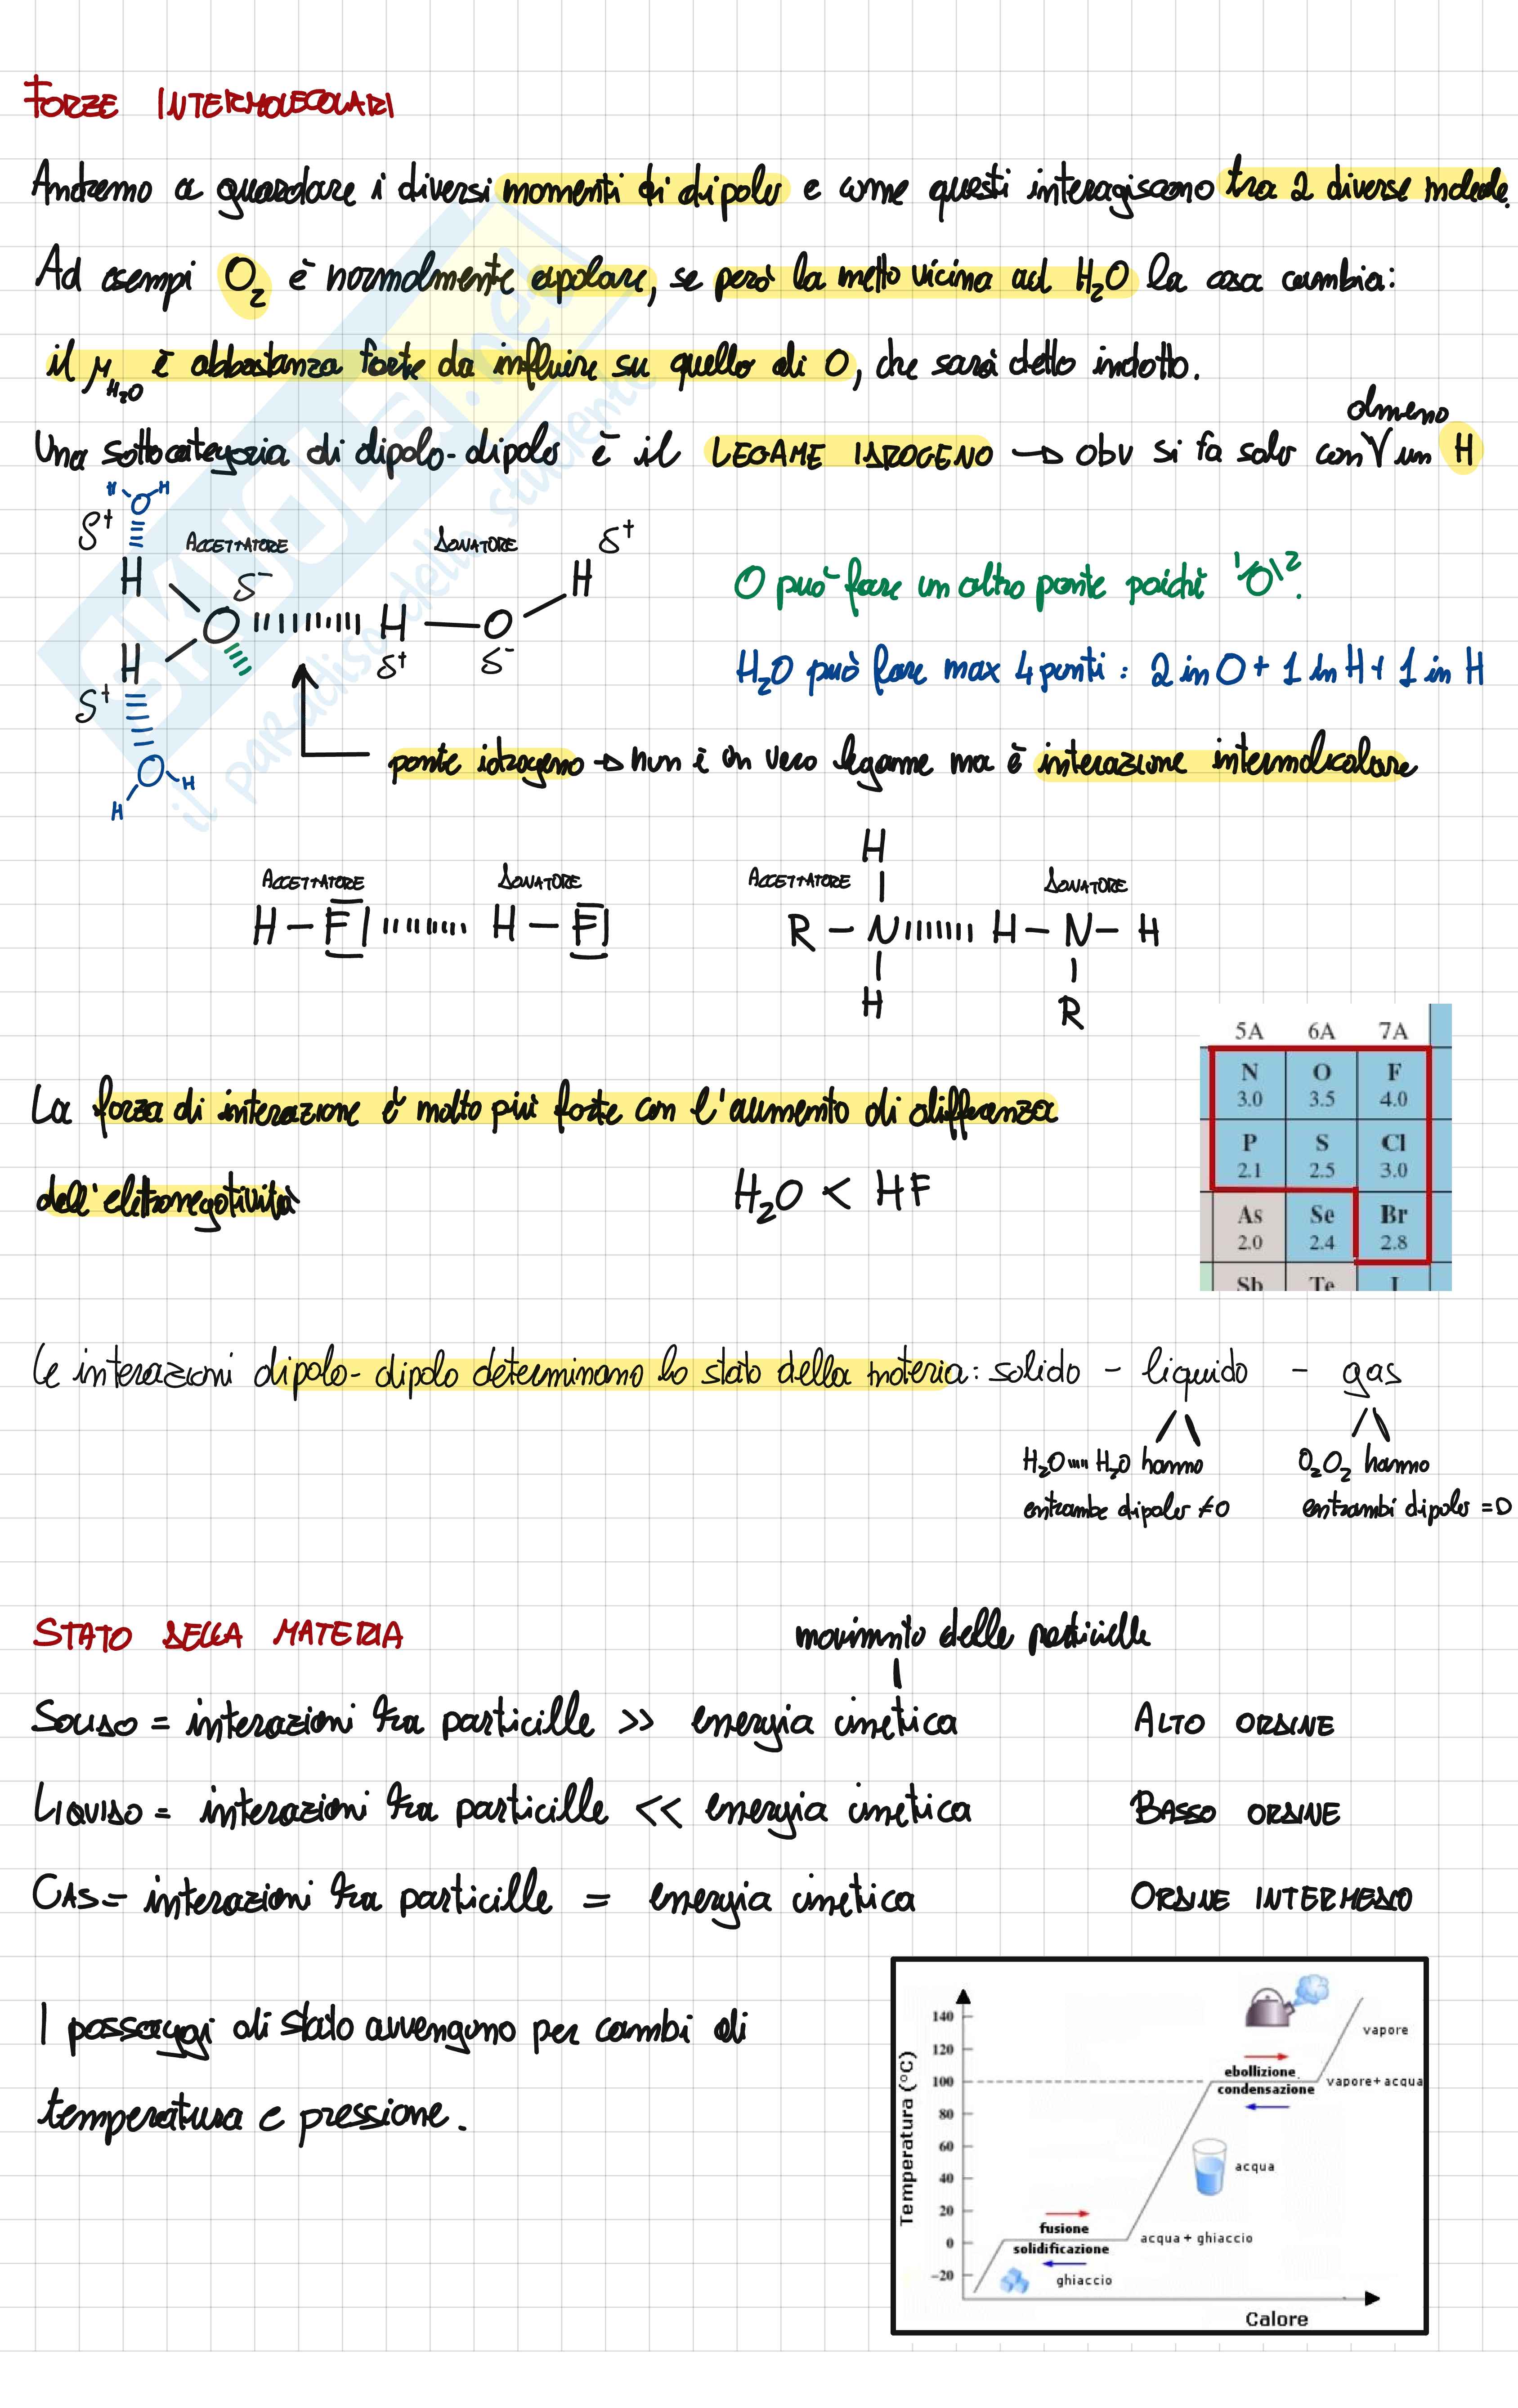 FORZE INTERMOLECOLARI
Andremo a guardare i diversi momenti di dipolo e come questi interagiscono tra 2 diverse molecole.
Ad esempi O₂ è normalmente apolare, se però la metto vicina ad H₂O la cosa cambia:
il μH₂O è abbastanza forte da influire su quello di O, che sarà detto indotto.
almeno
Una sottocategoria di dipolo-dipolo è il LEGAME IDROGENO → obv si fa solo con V un H
H O H
δ+ ACCETTATORE DONATORE δ+
H δ- H
O H O
H δ+ δ-
δ+
O H
H
O può fare un altro ponte poichè ¹O².
H₂O può fare max 4 ponti: 2 in O + 1 in H + 1 in H
ponte idrogeno → nun è un vero legame ma è interazione intermolecolare
ACCETTATORE DONATORE
H – F| H – F|
H
ACCETTATORE DONATORE
R – N H – N – H
H R
5A 6A 7A
N O F
3.0 3.5 4.0
P S Cl
2.1 2.5 3.0
As Se Br
2.0 2.4 2.8
Sb Te I
La forza di interazione è molto più forte con l'aumento di differenza
dell'elettronegatività H₂O < HF
Le interazioni dipolo-dipolo determinano lo stato della materia: solido - liquido - gas
H₂O H₂O hanno O₂O₂ hanno
entrambe dipolo ≠0 entrambi dipolo =0
STATO DELLA MATERIA
movimento delle particelle
SOLIDO = interazioni tra particelle >> energia cinetica ALTO ORDINE
LIQUIDO = interazioni tra particelle << energia cinetica BASSO ORDINE
GAS = interazioni tra particelle = energia cinetica ORDINE INTERMEDIO
I passaggi di stato avvengono per cambi di
temperatura e pressione.
Temperatura (°C)
140
120
100
80
60
40
20
0
-20
vapore
ebollizione
condensazione
vapore+acqua
acqua
fusione
solidificazione
acqua + ghiaccio
ghiaccio
Calore
SKUOLA.net
il paradiso dello studente